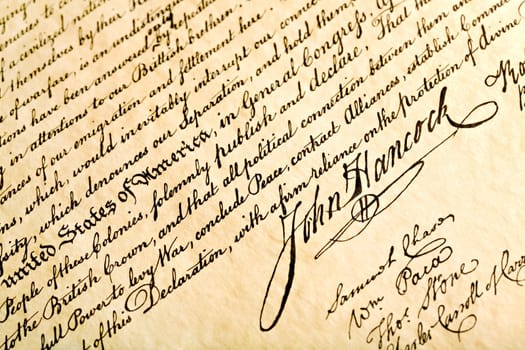 of a civilized nation
themselves by their
of warfare, is an undisti
tions have been answered by repeated
in attentions to our British brethren
ances of our emigration and settlement here.
ns, which, would inevitably interrupt our connec
sity, which denounces our Separation, and hold them,
united States of America, in General Congress, A
People of these Colonies, solemnly publish and declare, That th
to the British Crown, and that all political connection between them an
full Power to levy War, conclude Peace, contract Alliances, establish Commerc
t of this Declaration, with a firm reliance on the protection of divine
John Hancock
Samuel Chase
Wm Paca
Thos. Stone
Charles Carroll of Carr